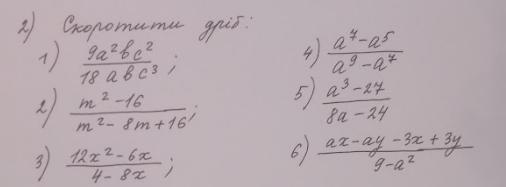 2) Скоротити дріб:
1) 9a²bc² / 18abc³ ;
2) m² - 16 / m² - 8m + 16 ;
3) 12x² - 6x / 4 - 8x ;
4) a⁷ - a⁵ / a⁹ - a⁷
5) a³ - 27 / 8a - 24
6) ax - ay - 3x + 3y / 9 - a²